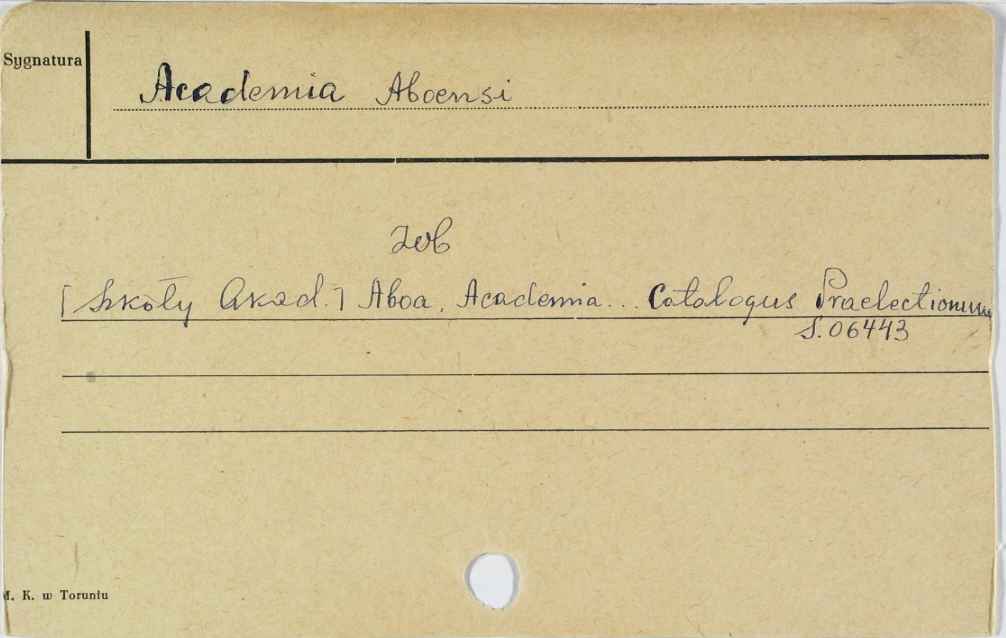 Sygnatura
Academia Aboensi
Zob
[Szkoły Akad.] Aboa, Academia... Catalogus Praelectionum
S.06443
M. K. w Toruniu